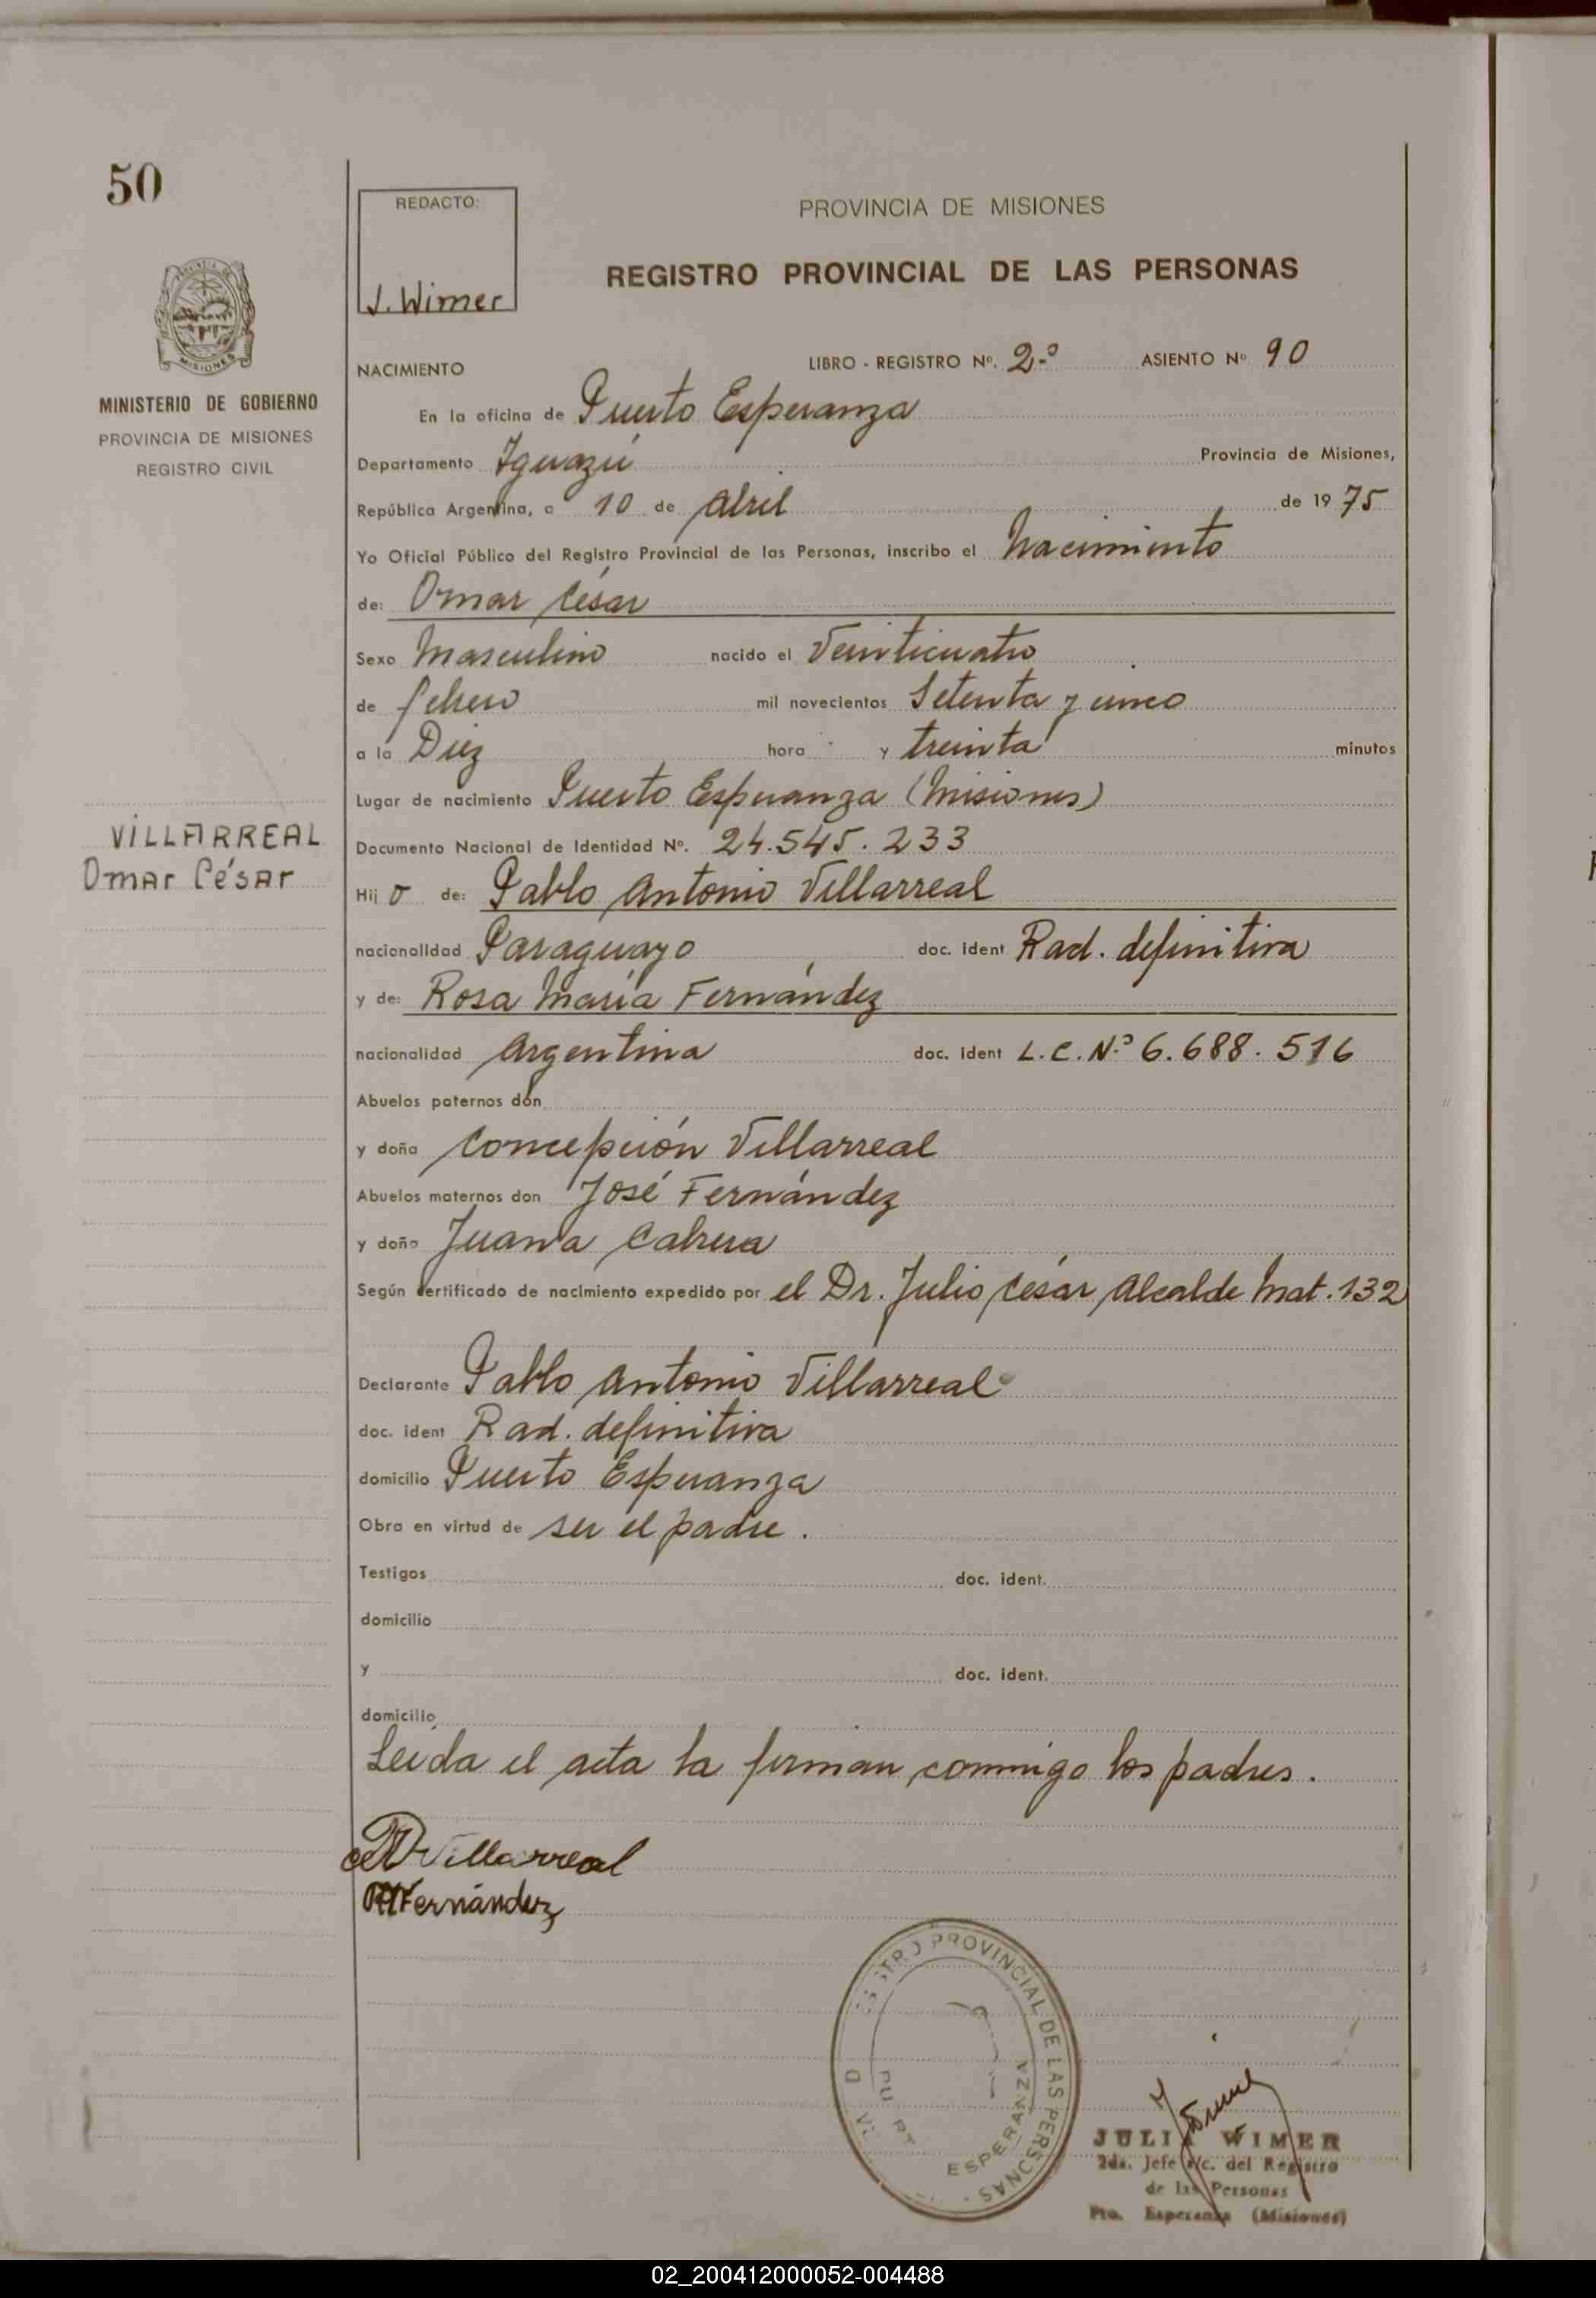 50
REDACTO:
J. Wimer
PROVINCIA DE MISIONES
REGISTRO PROVINCIAL DE LAS PERSONAS
MISIONES
MINISTERIO DE GOBIERNO
PROVINCIA DE MISIONES
REGISTRO CIVIL
NACIMIENTO LIBRO - REGISTRO Nº. 2-º ASIENTO Nº 90
En la oficina de Puerto Esperanza
Departamento Iguazú Provincia de Misiones,
República Argentina, a 10 de Abril de 1975
Yo Oficial Público del Registro Provincial de las Personas, inscribo el Nacimiento
de: Omar César
Sexo Masculino nacido el Veinticuatro
de febrero mil novecientos Setenta y cinco
a la Diez hora y treinta minutos
Lugar de nacimiento Puerto Esperanza (Misiones)
VILLARREAL
Omar César
Documento Nacional de Identidad Nº. 24.545.233
Hijo de: Pablo Antonio Villarreal
nacionalidad Paraguayo doc. ident Rad. definitiva
y de: Rosa María Fernández
nacionalidad Argentina doc. ident L.C.Nº 6.688.516
Abuelos paternos don
y doña Concepción Villarreal
Abuelos maternos don José Fernández
y doña Juana Cabrera
Según certificado de nacimiento expedido por el Dr. Julio César Alcalde Mat. 132
Declarante Pablo Antonio Villarreal
doc. ident Rad. definitiva
domicilio Puerto Esperanza
Obra en virtud de ser el padre.
Testigos doc. ident.
domicilio
y doc. ident.
domicilio
Leída el acta la firman conmigo los padres.
Villarreal
Fernández
PROVINCIAL DE LAS PERSONAS
ESPERANZA
JULIA WIMER
2da. Jefe a/c. del Registro
de las Personas
Pto. Esperanza (Misiones)
02_200412000052-004488